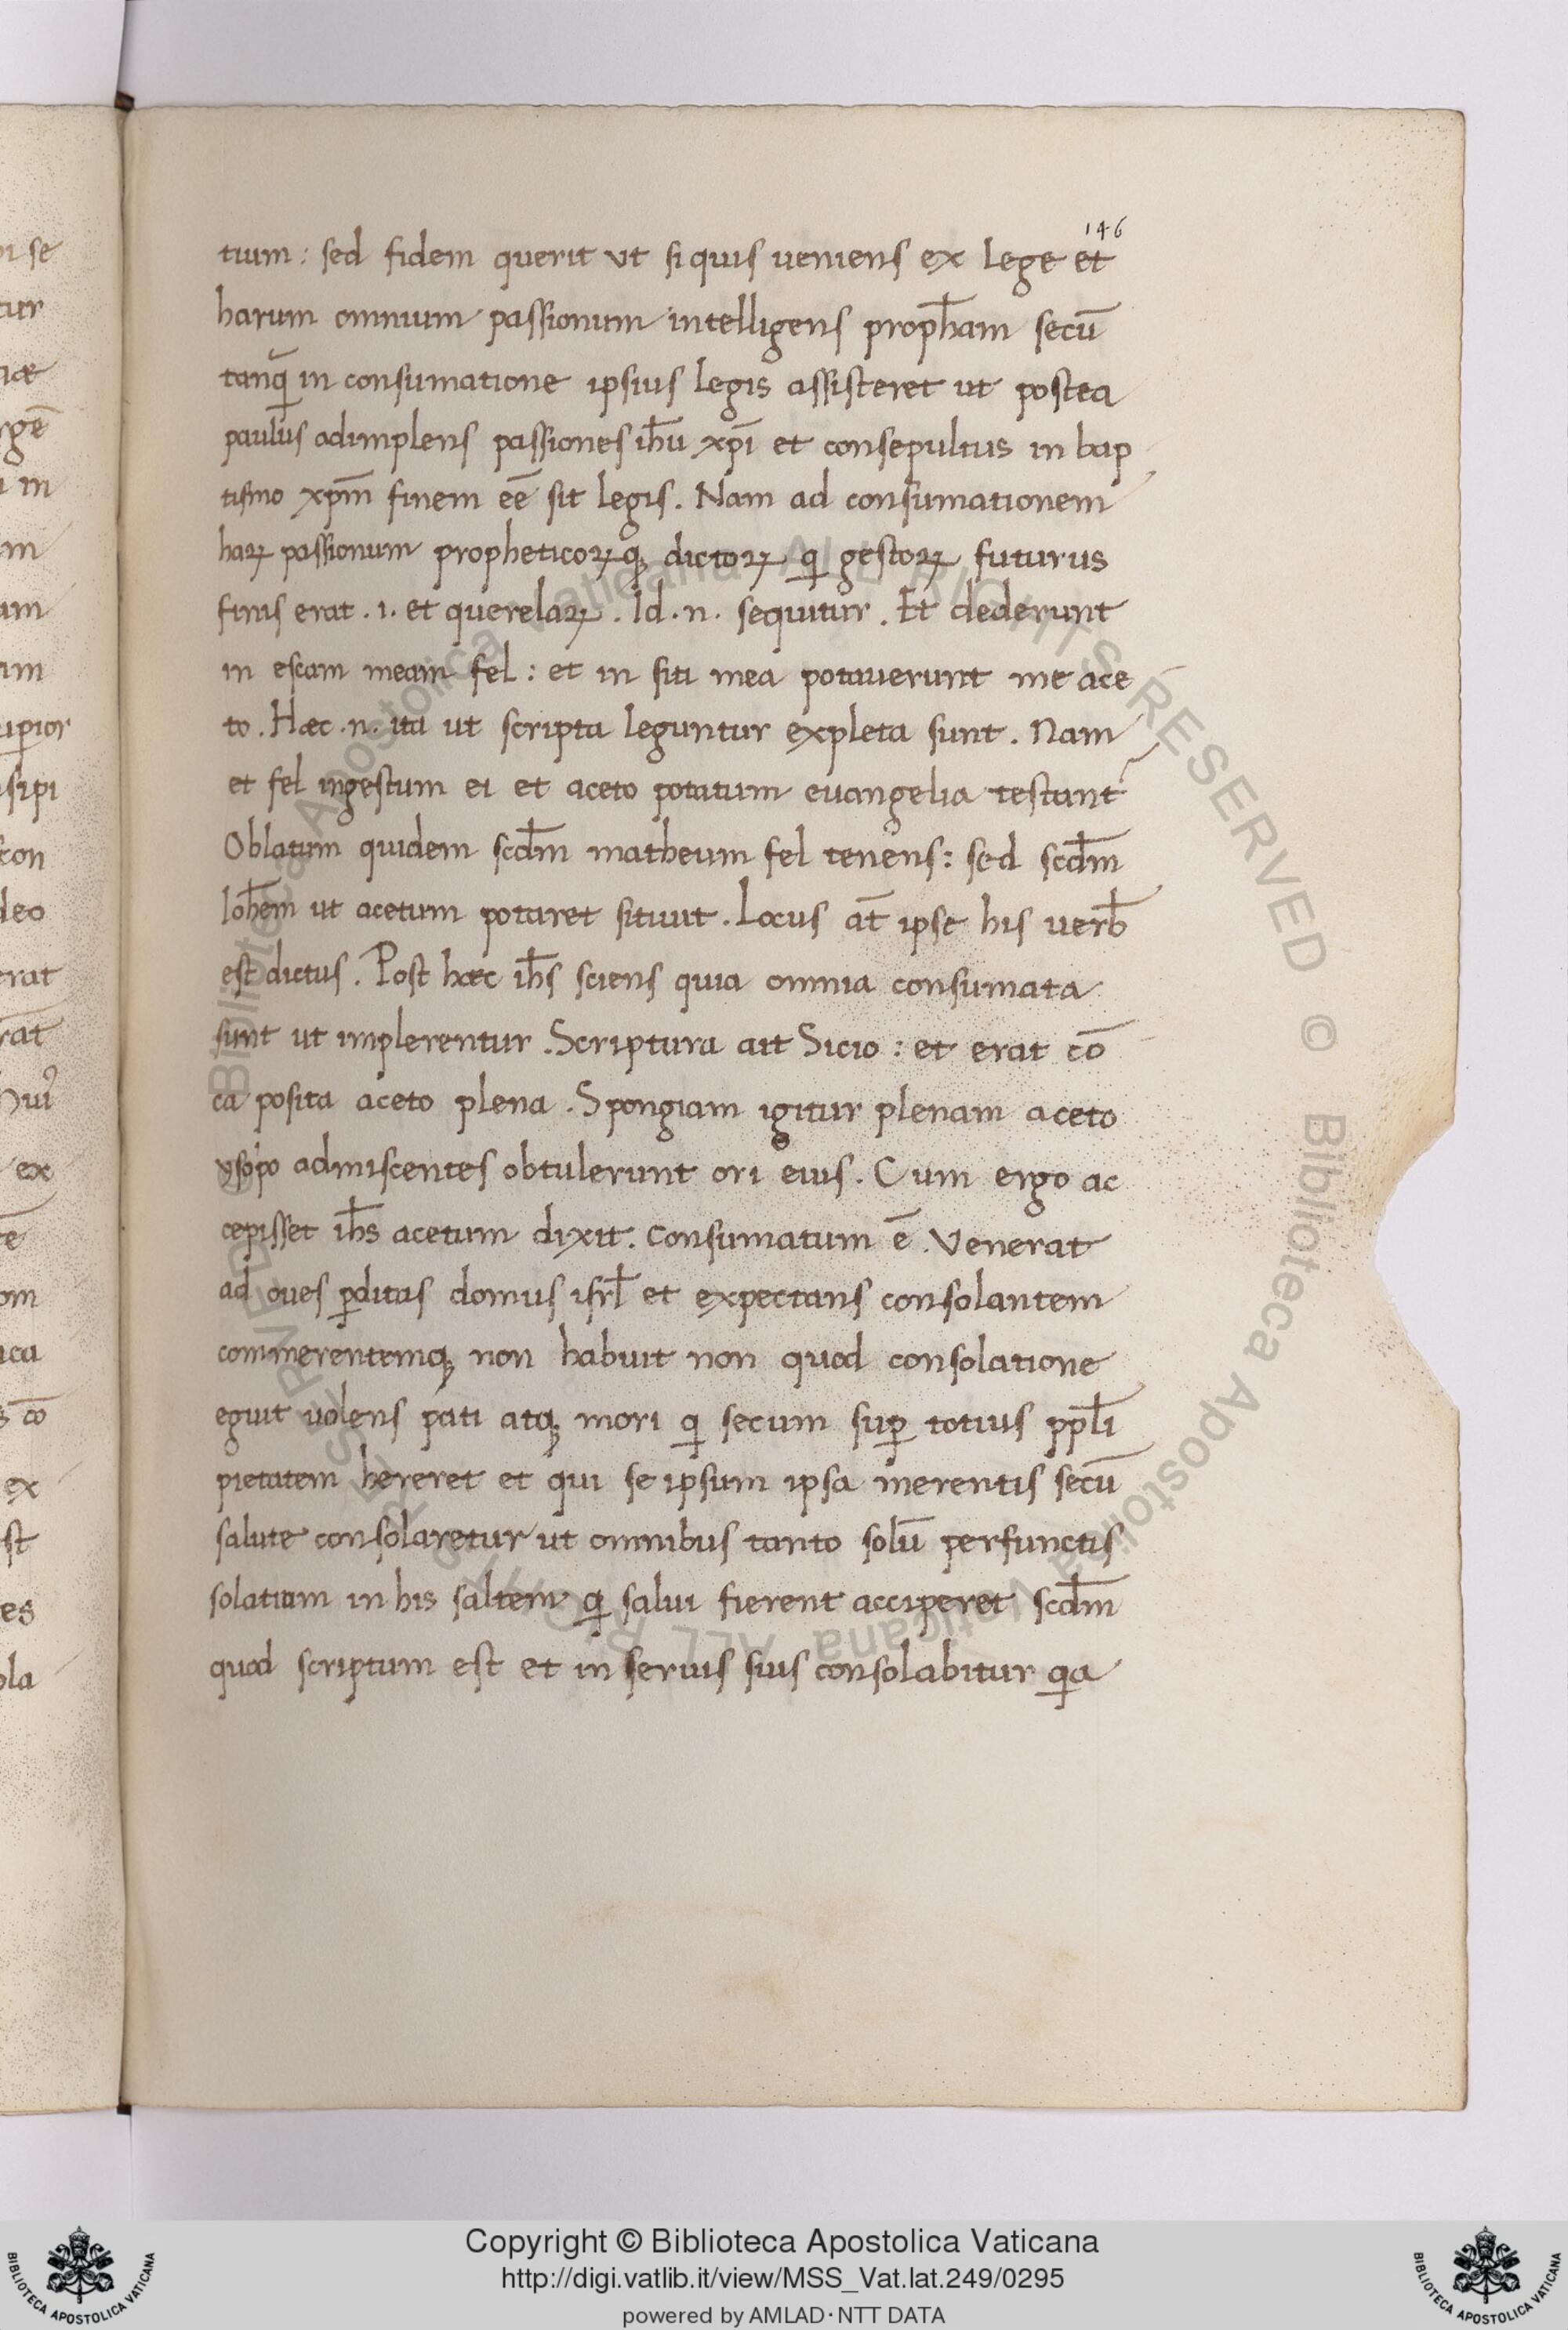 146
tium: sed fidem querit vt si quis ueniens ex lege et
harum omnium passionum intelligens proph̄am secū
tanq̄ in consumatione ipsius legis assisteret ut postea
paulus adimplens passiones ih̄u xp̄i et consepultus in bap
tismo xp̄m finem eē sit legis. Nam ad consumationem
haꝝ passionum propheticoꝝqꝫ dictoꝝ q gestoꝝ futurus
finis erat .i. et querelaꝝ. Id .n. sequitur. Et dederunt
in escam meam fel: et in siti mea potauerunt me ace
to. Hæc .n. ita ut scripta leguntur expleta sunt. Nam
et fel ingestum ei et aceto potatum euangelia testant᷑
Oblatum quidem scd̄m matheum fel tenens: sed scd̄m
Ioh̄em ut acetum potaret sitiuit. Locus at̄ ipse his uerb̄
est dictus. Post hæc ih̄s sciens quia omnia consumata
sunt ut implerentur. Scriptura ait Sicio: et erat cō
ca posita aceto plena. Spongiam igitur plenam aceto
ysopo admiscentes obtulerunt ori eius. Cum ergo ac
cepisset ih̄s acetum dixit. Consumatum ē. Venerat
ad oues ꝑditas domus isrl̄ et expectans consolantem
commerentemqꝫ non habuit non quod consolatione
eguit uolens pati atqꝫ mori q secum suꝑ totius ppl̄i
pietatem hereret et qui se ipsum ipsa merentis secū
salute consolaretur ut omnibus tanto solū perfunctis
solatium in his saltem q salui fierent acciperet scd̄m
quod scriptum est et in seruis suis consolabitur qa
Copyright © Biblioteca Apostolica Vaticana
http://digi.vatlib.it/view/MSS_Vat.lat.249/0295
powered by AMLAD·NTT DATA